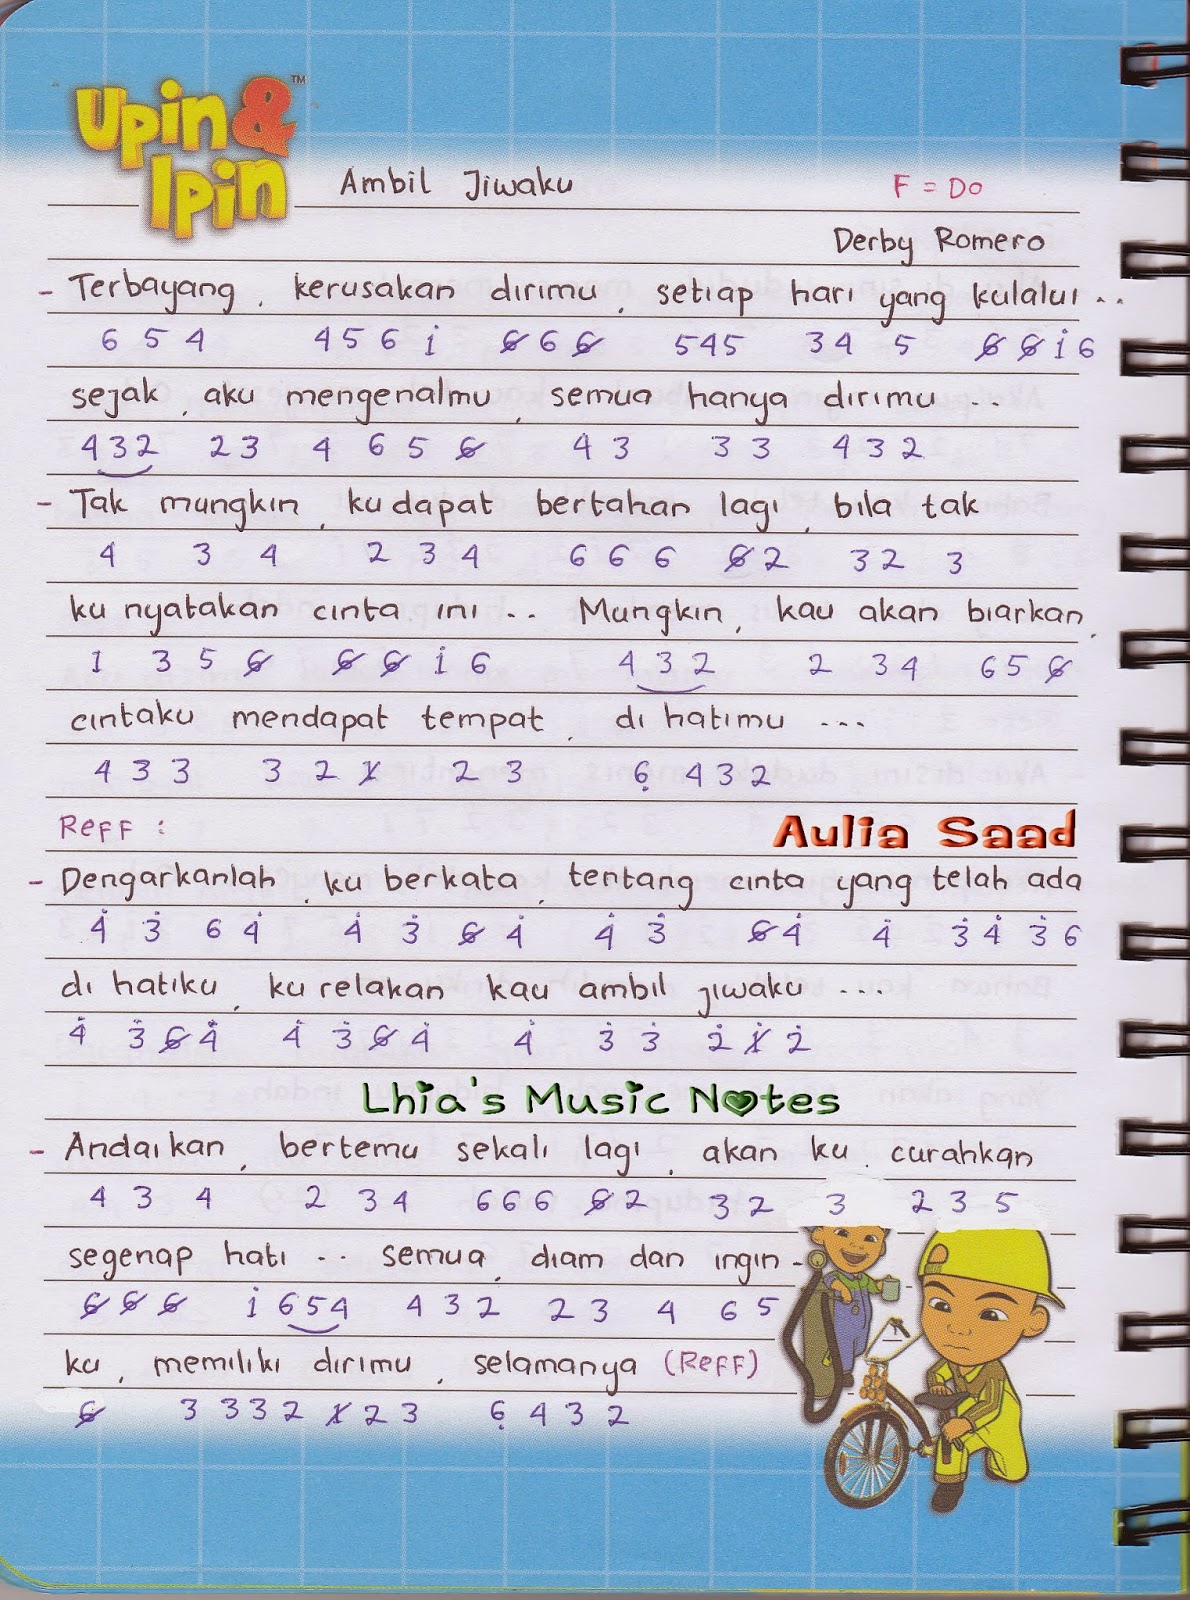 Upin & Ipin™
Ambil Jiwaku F = Do
Derby Romero
- Terbayang, kerusakan dirimu, setiap hari yang kulalui ..
6 5 4 4 5 6 i̇ 6̸ 6 6̸ 5 4 5 3 4 5 6̸ 6̸ i̇ 6
sejak, aku mengenalmu, semua hanya dirimu ...
4 3 2 2 3 4 6 5 6̸ 4 3 3 3 4 3 2
- Tak mungkin, ku dapat bertahan lagi, bila tak
4 3 4 2 3 4 6 6 6 6̸ 2 3 2 3
ku nyatakan cinta ini .. Mungkin, kau akan biarkan,
1 3 5 6̸ 6̸ 6̸ i̇ 6 4 3 2 2 3 4 6 5 6̸
cintaku mendapat tempat, di hatimu ...
4 3 3 3 2 1̸ 2 3 6̣ 4 3 2
Reff :
Aulia Saad
- Dengarkanlah, ku berkata, tentang cinta yang telah ada
4̇ 3̇ 6 4̇ 4̇ 3̇ 6̸ 4̇ 4̇ 3̇ 6̸ 4̇ 4̇ 3̇ 4̇ 3̇ 6
di hatiku, ku relakan kau ambil jiwaku ....
4̇ 3̇ 6̸ 4̇ 4̇ 3̇ 6̸ 4̇ 4̇ 3̇ 3̇ 2̇ 1̸̇ 2̇
Lhia's Music Notes
- Andaikan, bertemu sekali lagi, akan ku, curahkan
4 3 4 2 3 4 6 6 6 6̸ 2 3 2 3 2 3 5
segenap hati .. semua, diam dan ingin -
6̸ 6̸ 6̸ i̇ 6 5 4 4 3 2 2 3 4 6 5
ku, memiliki dirimu, selamanya (Reff)
6̸ 3 3 3 2 1̸ 2 3 6̣ 4 3 2